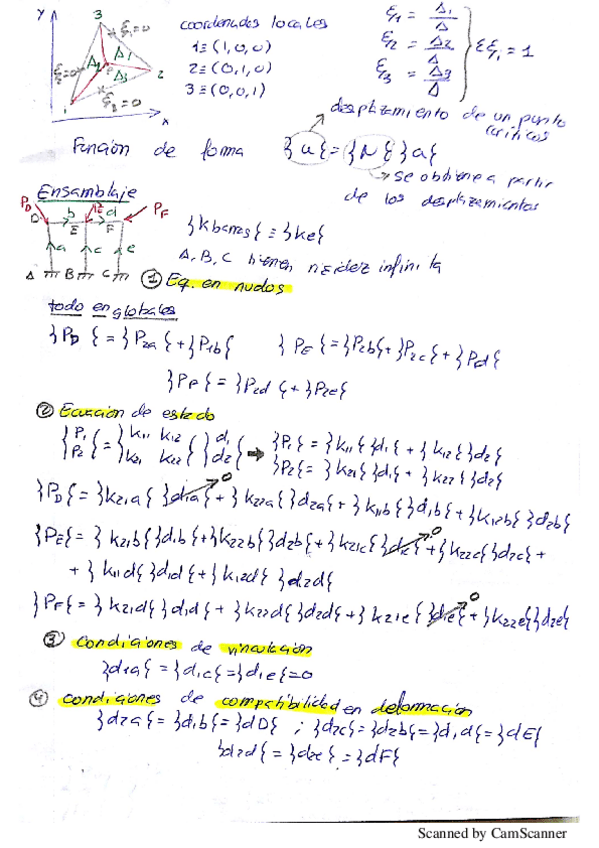 y
3
ξ1=0
ξ2=0
ξ3=0
Δ1
Δ2
Δ3
1
2
x
coordenadas locales
1≡(1,0,0)
2≡(0,1,0)
3≡(0,0,1)
ξ1 = Δ1/Δ
ξ2 = Δ2/Δ
ξ3 = Δ3/Δ
Σξi = 1
desplazamiento de un punto
Función de forma }u{ = }N{ }a{
se obtiene a partir
de los desplazamientos
Ensamblaje
PD PE PF
D b E d F
a c e
A B C
}kbarras{ ≡ }ke{
A, B, C tienen rigidez infinita
① Eq. en nudos
todo en globales
}PD{ = }P2a{ + }P1b{ }PE{ = }P2b{ + }P2c{ + }P1d{
}PF{ = }P2d{ + }P2e{
② Ecuación de estado
{P1 P2} = {k11 k12 k21 k22} {d1 d2} → }P1{ = }k11{ }d1{ + }k12{ }d2{
}P2{ = }k21{ }d1{ + }k22{ }d2{
}PD{ = }k21a{ }d1a{ 0 + }k22a{ }d2a{ + }k11b{ }d1b{ + }k12b{ }d2b{
}PE{ = }k21b{ }d1b{ + }k22b{ }d2b{ + }k21c{ }d1c{ 0 + }k22c{ }d2c{ +
+ }k11d{ }d1d{ + }k12d{ }d2d{
}PF{ = }k21d{ }d1d{ + }k22d{ }d2d{ + }k21e{ }d1e{ 0 + }k22e{ }d2e{
③ Condiciones de vinculación
}d1a{ = }d1c{ = }d1e{ = 0
④ condiciones de compatibilidad en deformación
}d2a{ = }d1b{ = }dD{ ; }d2c{ = }d2b{ = }d1d{ = }dE{
}d2d{ = }d2e{ = }dF{
Scanned by CamScanner